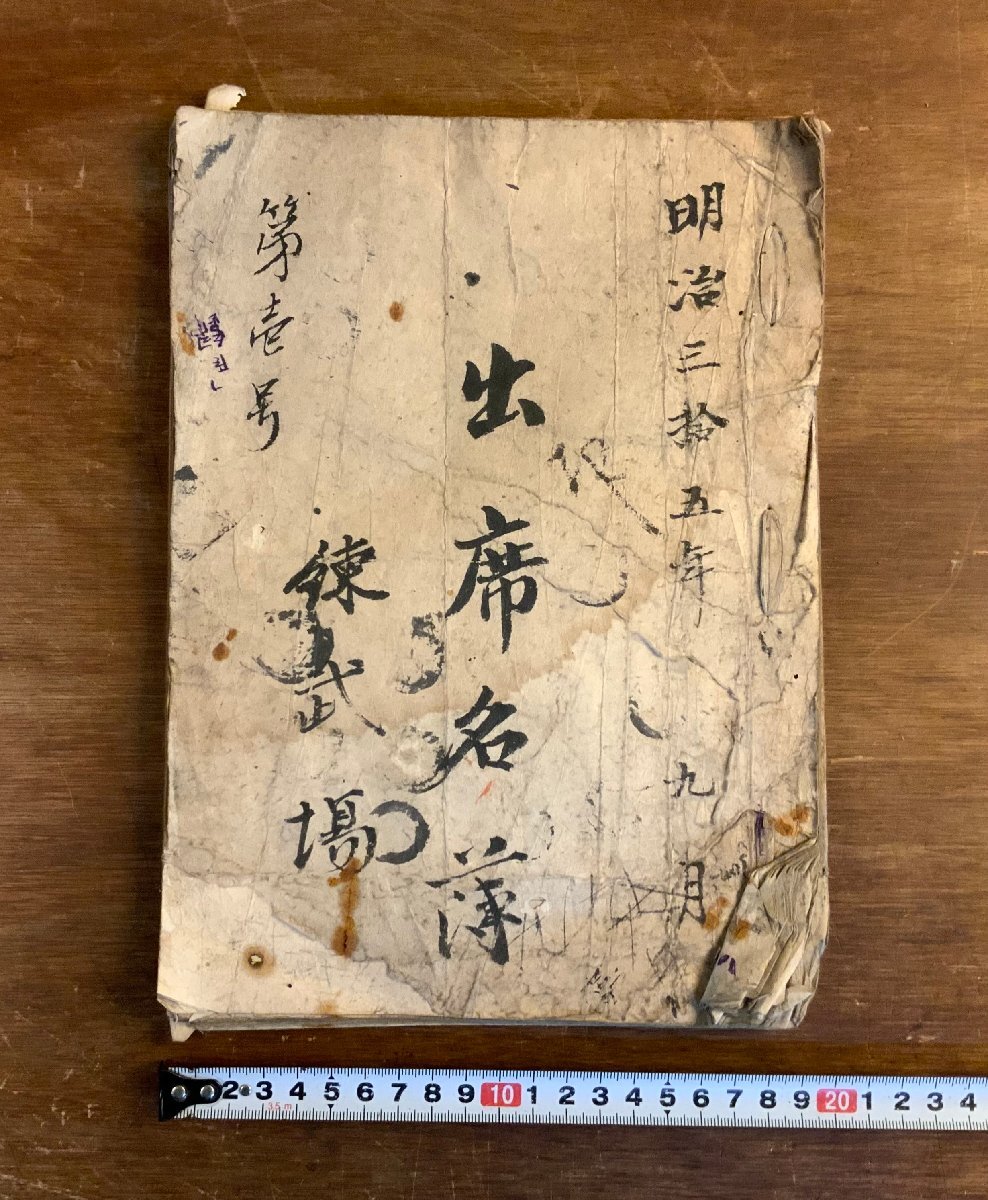 明治三拾五年九月
出席名薄
錬武場
第壱号
2 3 4 5 6 7 8 9 10 1 2 3 4 5 6 7 8 9 20 1 2 3 4
3.5m